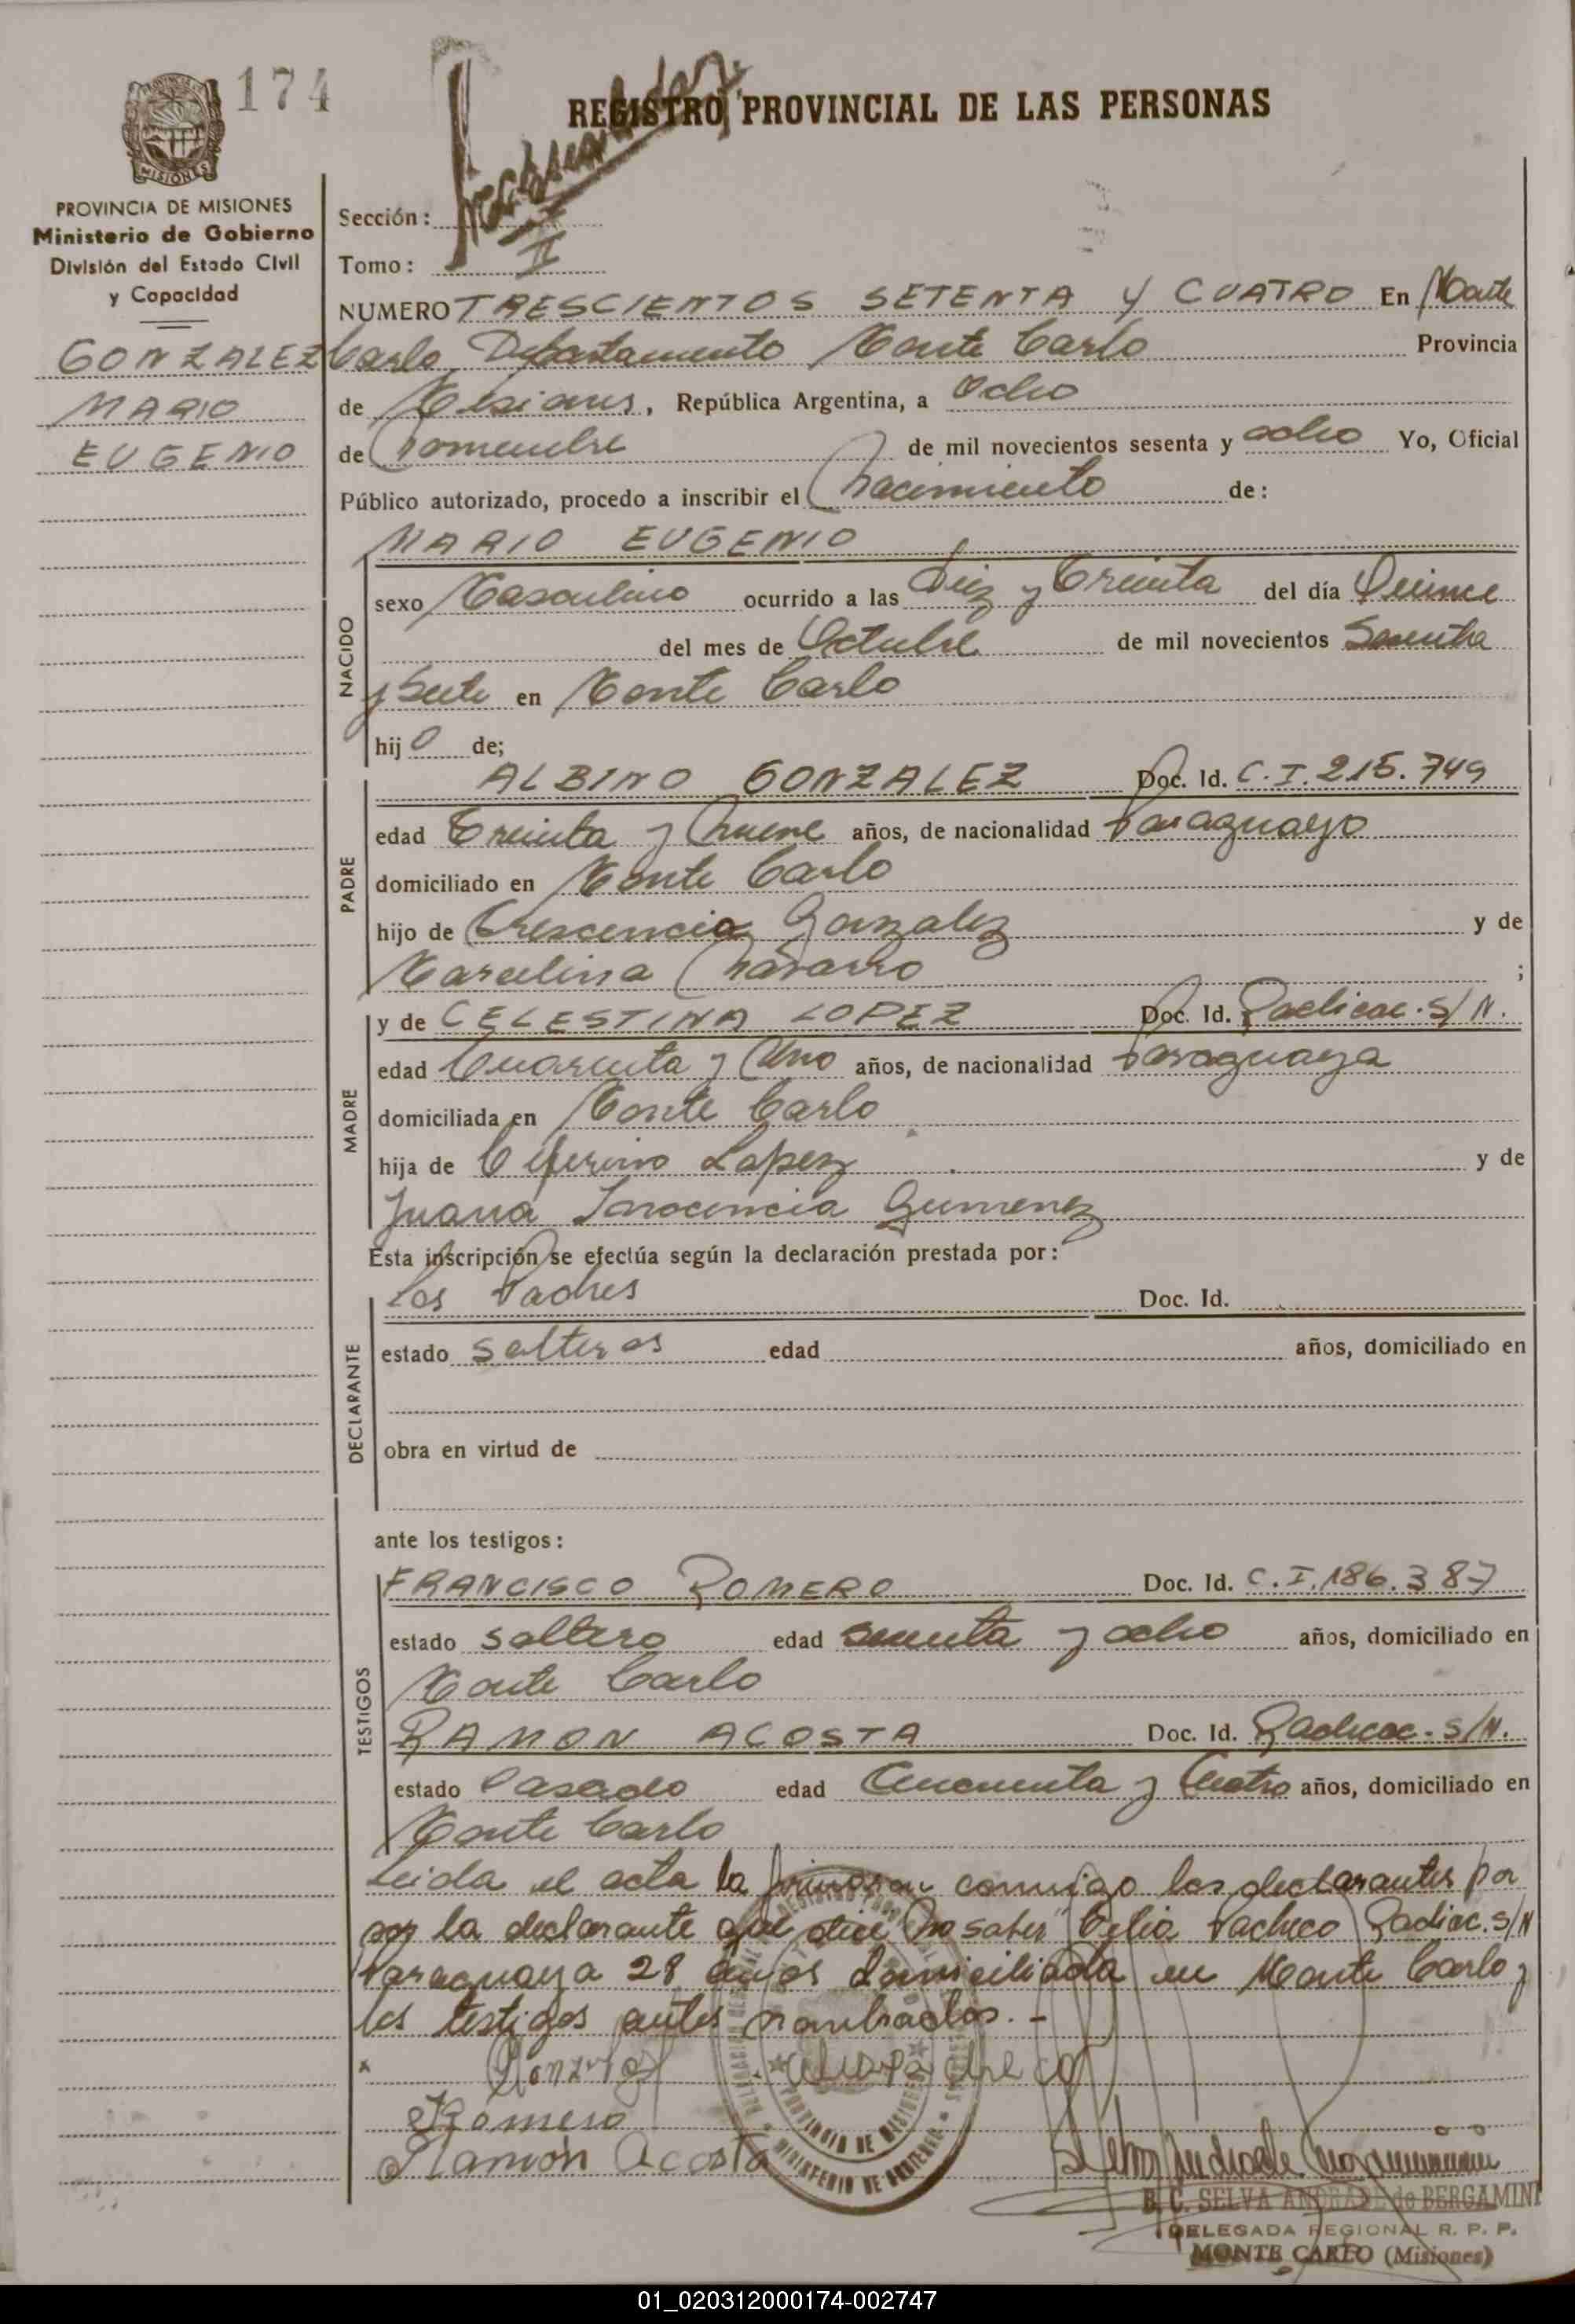 174
REGISTRO PROVINCIAL DE LAS PERSONAS
PROVINCIA DE MISIONES
Ministerio de Gobierno
División del Estado Civil
y Capacidad
GONZALEZ
MARIO
EUGENIO
Sección:
Tomo: II
NUMERO TRESCIENTOS SETENTA Y CUATRO En Monte
Carlo Departamento Monte Carlo Provincia
de Misiones, República Argentina, a Ocho
de Noviembre de mil novecientos sesenta y ocho Yo, Oficial
Público autorizado, procedo a inscribir el Nacimiento de:
MARIO EUGENIO
NACIDO
sexo Masculino ocurrido a las Diez y Treinta del día Quince
del mes de Octubre de mil novecientos Sesenta
y Siete en Monte Carlo
hijo de;
PADRE
ALBINO GONZALEZ Doc. Id. C.I. 215.749
edad Treinta y Nueve años, de nacionalidad Paraguayo
domiciliado en Monte Carlo
hijo de Crescencio Gonzalez y de
Marcelina Navarro ;
MADRE
y de CELESTINA LOPEZ Doc. Id. Radicac. S/N.
edad Cuarenta y Uno años, de nacionalidad Paraguaya
domiciliada en Monte Carlo
hija de Ceferino Lopez y de
Juana Inocencia Gimenez
Esta inscripción se efectúa según la declaración prestada por:
DECLARANTE
Los Padres Doc. Id.
estado Solteros edad años, domiciliado en
obra en virtud de
ante los testigos:
TESTIGOS
FRANCISCO ROMERO Doc. Id. C.I. 186.387
estado Soltero edad Sesenta y ocho años, domiciliado en
Monte Carlo
RAMON ACOSTA Doc. Id. Radicac. S/N.
estado Casado edad Cincuenta y Cuatro años, domiciliado en
Monte Carlo
Leida el acta la firman conmigo los declarantes por
la declarante que dice "No saber" Celia Pacheco Radicac. S/N
Paraguaya 28 años domiciliada en Monte Carlo y
los testigos antes nombrados. -
Romero
Ramón Acosta
PROVINCIA DE MISIONES
B. C. SELVA ANDRADE de BERGAMINI
DELEGADA REGIONAL R. P. P.
MONTE CARLO (Misiones)
01_020312000174-002747